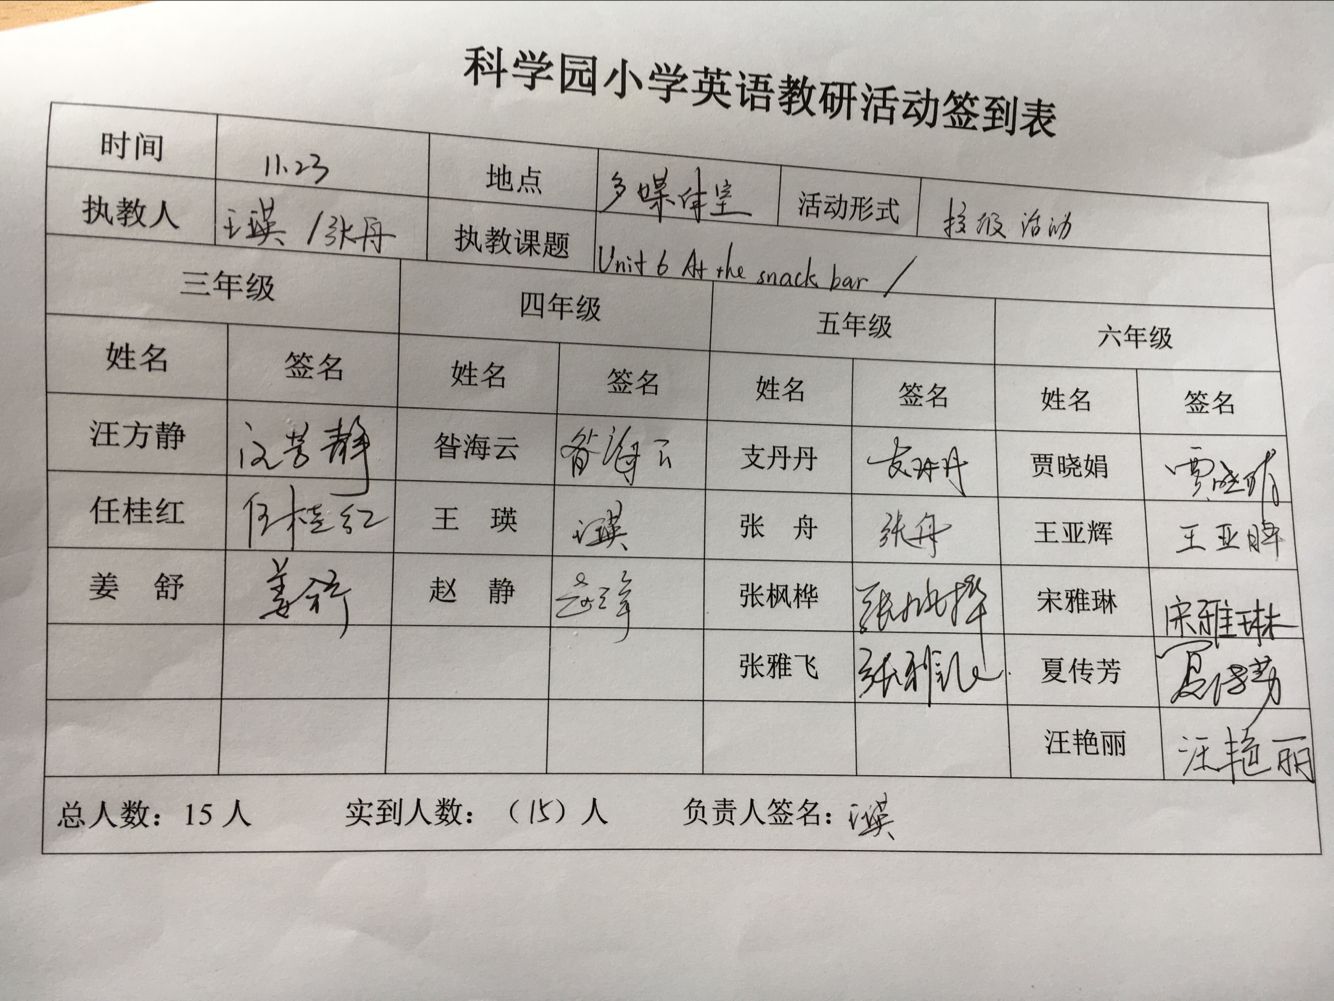 科学园小学英语教研活动签到表
时间 11.23 地点 多媒体室 活动形式 校级活动
执教人 王瑛/张舟 执教课题 Unit 6 At the snack bar /
三年级 四年级 五年级 六年级
姓名 签名 姓名 签名 姓名 签名 姓名 签名
汪方静 汪芳静 昝海云 昝海云 支丹丹 支丹丹 贾晓娟 贾晓娟
任桂红 任桂红 王 瑛 王瑛 张 舟 张舟 王亚辉 王亚辉
姜 舒 姜舒 赵 静 赵静 张枫桦 张枫桦 宋雅琳 宋雅琳
张雅飞 张雅飞 夏传芳 夏传芳
汪艳丽 汪艳丽
总人数：15 人 实到人数：（15）人 负责人签名：王瑛